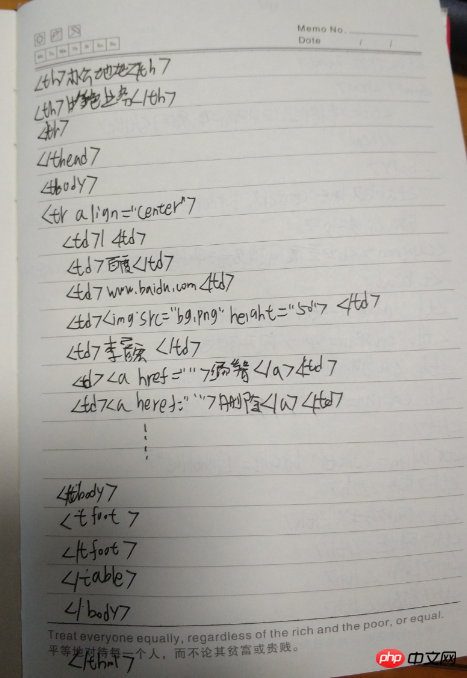 Memo No.
Date / /
<th>办公地址</th>
<th></th>
<tr>
</thead>
<tbody>
<tr align="center">
<td>1 <td>
<td>百度</td>
<td>www.baidu.com<td>
<td><img src="bg.png" height="50"> </td>
<td>李彦宏 </td>
<td><a href="">编辑</a><td>
<td><a heref="">删除</a><td>
</tbody>
<tfoot>
</tfoot>
</table>
</body>
Treat everyone equally, regardless of the rich and the poor, or equal.
平等地对待每一个人，而不论其贫富或贵贱。
</html>
php 中文网